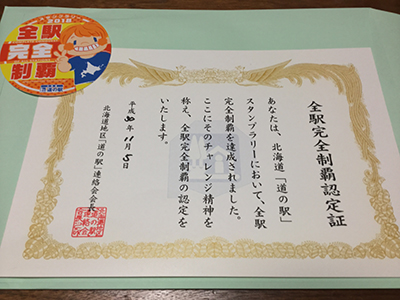 2018
全駅
完全
制覇
全駅完全制覇認定証
あなたは、北海道「道の駅」
スタンプラリーにおいて、全駅
完全制覇を達成されました。
ここにそのチャレンジ精神を
称え、全駅完全制覇の認定を
いたします。
平成30年11月5日
北海道地区「道の駅」連絡会会長